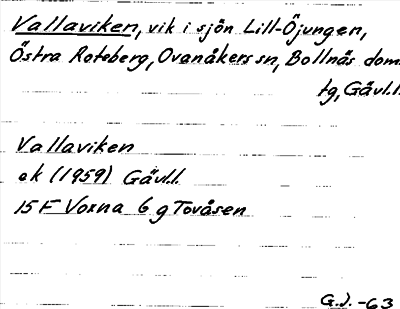 Vallaviken, vik i sjön Lill-Öjungen,
Östra Roteberg, Ovanåkers sn, Bollnäs doms.
tg, Gävl.l.
Vallaviken
ek (1959) Gävl.l.
15 F Voxna 6 g Tovåsen
G.J. -63